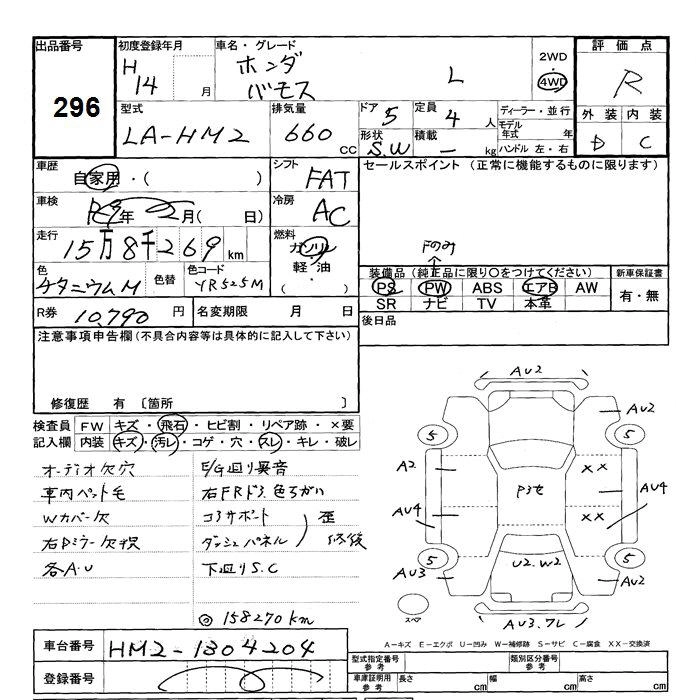 出品番号 初度登録年月 車名・グレード 2WD・4WD 評価点
296 H14 月 ホンダ バモス L R
型式 排気量 ドア 5 定員 4 人 ディーラー・並行 外装 内装
LA-HM2 660 CC 形状 S.W 積載 — kg モデル年式 年 D C
ハンドル 左・右
車歴 自家用・( ) シフト FAT セールスポイント (正常に機能するものに限ります)
車検 年 月( 日) 冷房 AC
走行 15万8千269 km 燃料 ガソリン・軽油・( ) Fのみ
色 チタニウムM 色替 色コード YR525M
装備品 (純正品に限り〇をつけてください) 新車保証書
PS PW ABS エアB AW 有・無
SR ナビ TV 本革
R券 10,790 円 名変期限 月 日 後日品
注意事項申告欄(不具合内容等は具体的に記入して下さい)
修復歴 有 〔箇所 〕
検査員 FW キズ・飛石・ヒビ割・リペア跡・×要
記入欄 内装 キズ・汚レ・コゲ・穴・スレ・キレ・破レ
オーディオ欠穴 E/G廻り異音
車内ペット毛 右FRドア色ちがい
Wカバー欠 コアサポート
右Dミラー欠損 ダッシュパネル 歪 修後
各A.U 下廻りS.C
◎158270km
AU2
AU2
5 5
A2 ×× P3セ AU4
AU4 ××
5 U2.W2 5
AU3 AU2
スペア AU3.ワレ
A-キズ E-エクボ U-凹み W-補修跡 S-サビ C-腐食 XX-交換済
車台番号 HM2-1304204
登録番号
型式指定番号参考 類別区分番号参考
車庫証明用参考 長さ cm 幅 cm 高さ cm